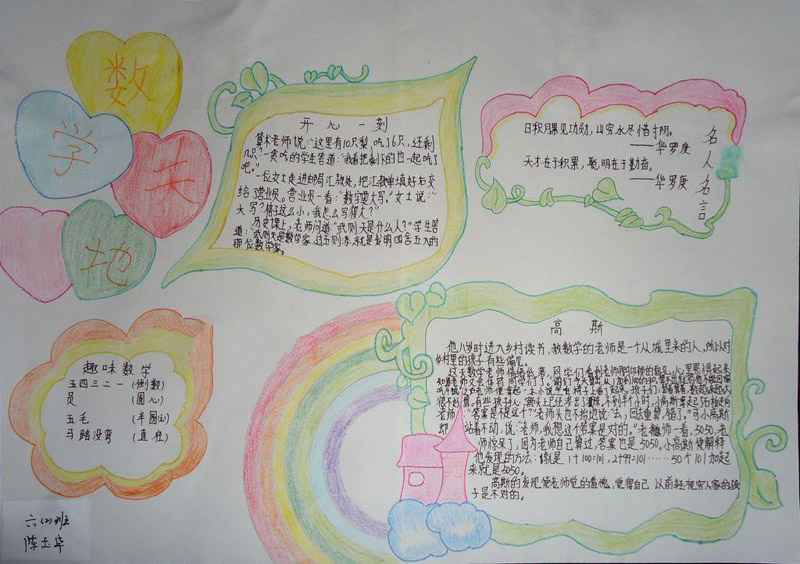 数
学
天
地
开心一刻
算术老师说:“这里有10只梨,吃了6只,还剩
几只?”一贪吃的学生答道:“我看把剩下的也一起吃了
吧。”
一位女士走进邮局汇款处,把汇款单填好后交
给营业员。营业员一看:“数字要大写。”女士说:“
大写?格子这么小,我怎么写得大?”
历史课上,老师问道“武则天是什么人?”学生答
道:“武则天是数学家,过五则本,就是发明四舍五入的
那位数学家。
日积月累见功勋,山穷水尽惜寸阴。
——华罗庚
天才在于积累,聪明在于勤奋。
——华罗庚
名人名言
趣味数学
五四三二一 (倒数)
员 (圆心)
五毛 (半圆)
马路没弯 (直径)
高斯
他八岁时进入乡村读书,教数学的老师是一个从城里来的人,所以对
乡村里的孩子有些偏见。
老师:“答案是不是这个?”老师头也不抬地说:“去,回去重算,错了。”可小高斯
却站着不动,说:“老师,我想这个答案是对的。”老师一看,5050,老
师惊呆了,因为老师自己算过,答案也是5050。小高斯便解释
他发现的方法:就是1+100=101,2+99=101……50个101加起
来就是5050。
高斯的发现使老师觉的羞愧,觉得自己以前轻视穷人家的孩
子是不对的。
六(2)班
陈玉华